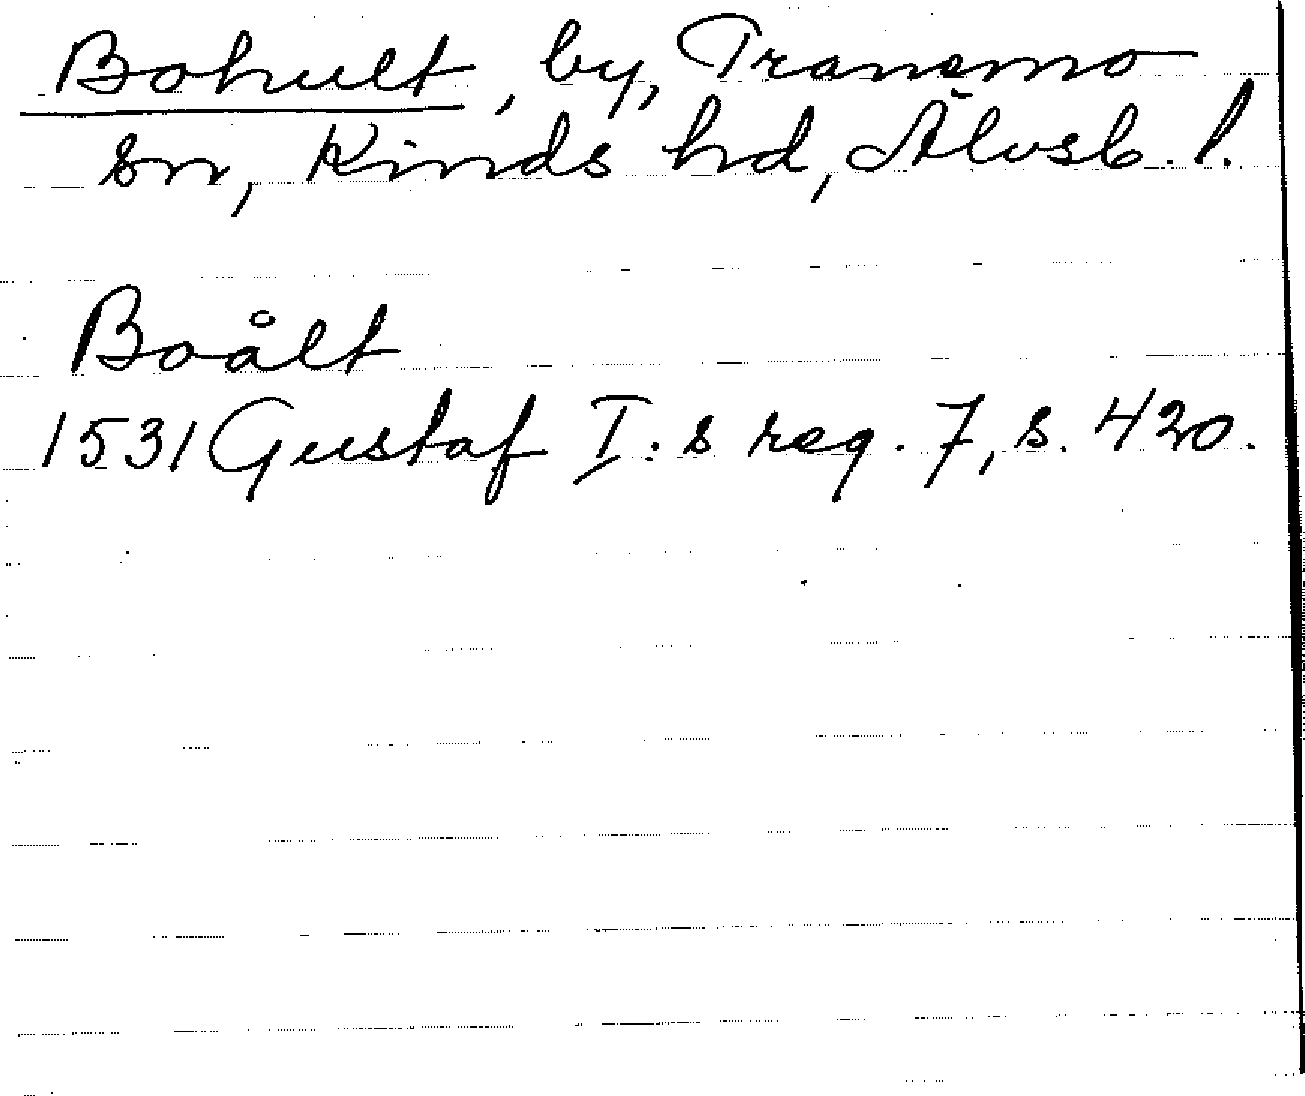 Bohult, by, Tranemo
sn, Kinds hd, Älvsb. l.
Boålt
1531 Gustaf I:s reg. 7, s. 420.